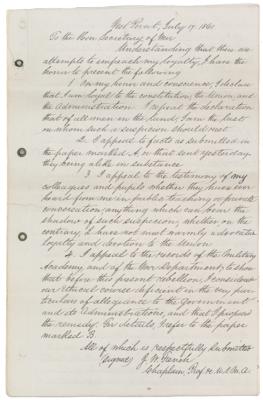 West Point, July 17 1861
To the Hon Secretary of War
Understanding that there are
attempts to impeach my loyalty, I have the
honor to present the following
1. On my honor and conscience, I declare
that I am loyal to the constitution, the Union, and
the Administration. I repeat the declaration
that of all men in the land, I am the last
on whom such a suspicion should rest
2. I appeal to facts as submitted in
the paper marked A, or that sent yesterday
they being alike in substance
3. I appeal to the testimony of my
colleagues and pupils whether they have ever
heard from me in public teaching or private
conversation, anything which can bear the
shadow of such suspicion, whether on the
contrary, I have not most warmly advocated
loyalty and devotion to the Union
4. I appeal to the records of the Military
Academy and of the War Department, to show
that before this present rebellion, I considered
our ethical course deficient in the very par
ticulars of allegiance to the Government
and its Administrations, and that I proposed
the remedy. For details, I refer to the paper
marked B
All of which is respectfully submitted
(signed) J. W. French
Chaplain, Prof &c U.S.M.A